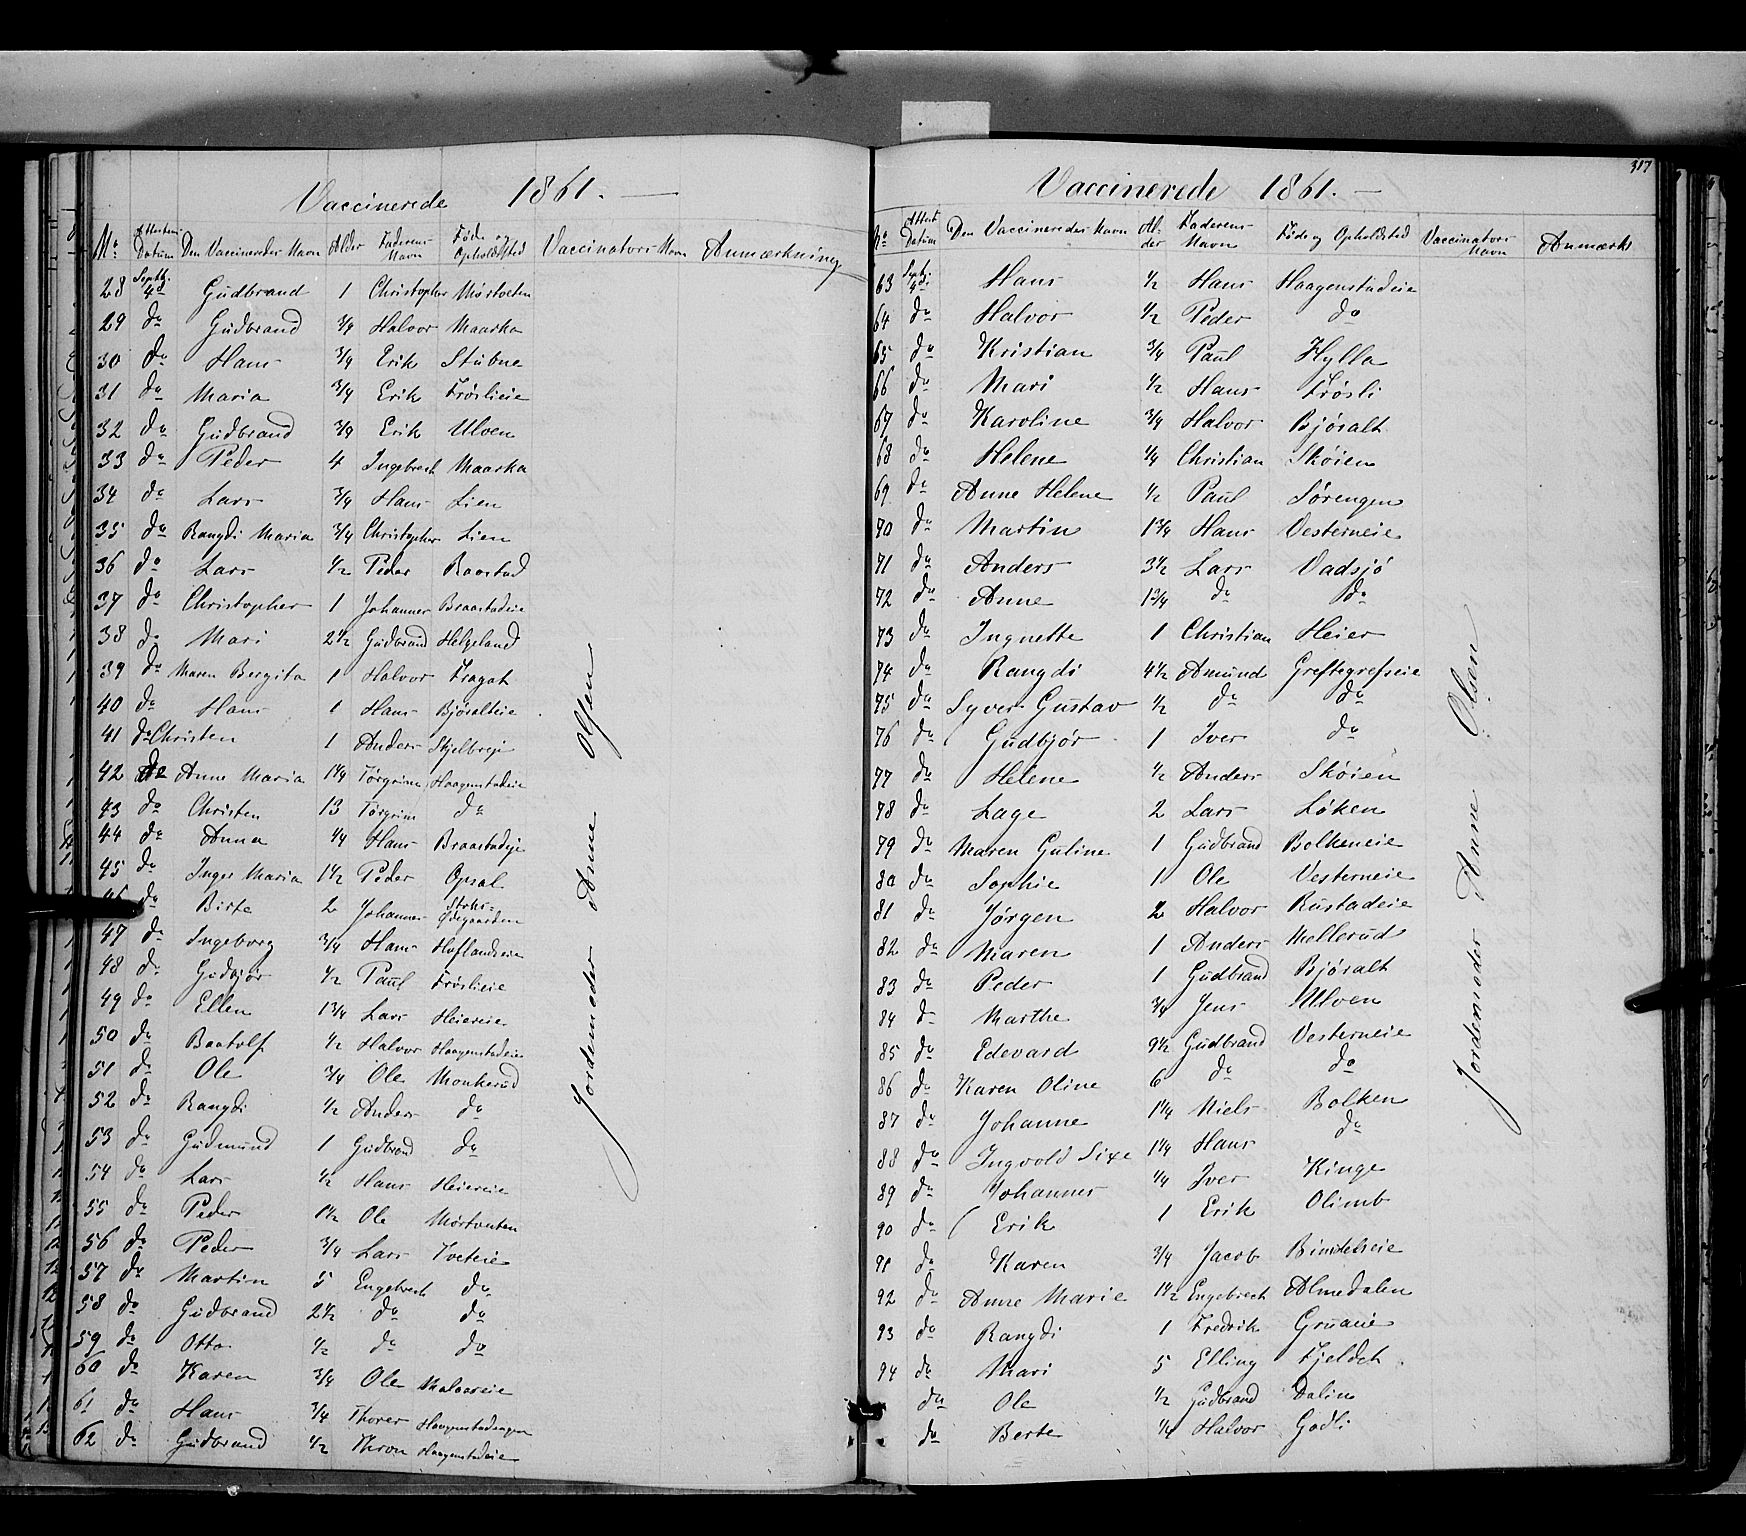 Vaccinerede 1861. —
No Attestens Datum Den Vaccineredes Navn Alder Faderens Navn Føde og Opholdsted Vaccinators Navn Anmærkning
28 Septb. 4d Gudbrand 1 Christopher
29 do Gudbrand 3/4 Halvor Maarka
30 do Hans 3/4 Erik Stubne
31 do Maria 3/4 Erik Frøslieie
32 do Gudbrand 3/4 Erik Ulven
33 do Peder 4 Ingebrech Maarka
34 do Lars 3/4 Hans Lien
35 do Rangdi Maria 3/4 Christopher Lien
36 do Lars 1/2 Peder Raastad
37 do Christopher 1 Johannes Braastadeie
38 do Mari 2 1/2 Gudbrand Helgeland
39 do Maren Bergita 1 Halvor Fragot
40 do Hans 1 Hans Bjøralteie
41 do Christen 1 Anders Skjelbreji
42 do Anne Maria 1 1/4 Torgrim Haagenstadeie
43 do Christen 13 Torgrim do
44 do Anna 1/4 Hans Braastadeje
45 do Inger Maria 1 1/2 Peder Opsal
46 do Birte 2 Johannes Stoks-Ødegaarden
47 do Ingeborg 3/4 Hans Hoflandseie
48 do Gudbjør 1/2 Paul Frøslieie
49 do Ellen 1 3/4 Lars Heiereie
50 do Baatolf 1/2 Halvor Haagenstadeie
51 do Ole 3/4 Ole Monkerud
52 do Rangdi 1/2 Anders do
53 do Gudmund 1 Gudbrand do
54 do Lars 1/2 Hans Heiereie
55 do Peder 1 1/2 Ole Mørtvedten
56 do Peder 3/4 Lars Tveteie
57 do Martin 5 Engebrech do
58 do Gudbrand 2 1/2 do do
59 do Otto 1/2 do do
60 do Karen 3/4 Ole
61 do Hans 3/4 Thorer Haagenstadengen
62 do Gudbrand 1/2 Thron Haagenstadeie
Jordemoder Anne Olsen
317
Vaccinerede 1861. —
No Attest Datum Den Vaccineredes Navn Alder Faderens Navn Føde og Opholdsted Vaccinators Navn Anmærk
63 Septb. 4d Hans 1/2 Hans Haagenstadeie
64 do Halvor 1/2 Peder do
65 do Kristian 3/4 Paul Hylla
66 do Mari 1/2 Hans Frøsli
67 do Karoline 3/4 Halvor Bjøralt
68 do Helene 1/4 Christian Skøien
69 do Anne Helene 1/2 Paul Sørengen
70 do Martin 1 3/4 Hans Vesterneie
71 do Anders 3 1/2 Lars Vadsjø
72 do Anne 1 3/4 do do
73 do Ingnette 1 Christian Heier
74 do Rangdi 4 1/2 Amund Greftegrefseie
75 do Syver Gustav 1/2 do do
76 do Gudbjør 1 Iver do
77 do Helene 1/2 Anders Skøien
78 do Lage 2 Lars Løken
79 do Maren Guline 1 Gudbrand Bolkeneie
80 do Sophie 1 Ole Vesterneie
81 do Jørgen 2 Halvor Rustadeie
82 do Maren 1 Anders Mellerud
83 do Peder 1 Gudbrand Bjøralt
84 do Marthe 3/4 Jens Ulven
85 do Edevard 9 1/2 Gudbrand Vesterneie
86 do Karen Oline 6 do do
87 do Johanne 1 1/4 Niels Bolken
88 do Ingvold Sixe 1 1/4 Hans do
89 do Johannes 1/4 Iver Kinge
90 do Erik 1 Erik Olimb
91 do Karen 3/4 Jacob Bindelseie
92 do Anne Marie 1 1/2 Engebrech Almedalen
93 do Rangdi 1 Fredrik Gruaeie
94 do Mari 5 Elling Fjeldet
do Ole 1/2 Gudbrand Dalin
do Berte 1/4 Halvor Godli
Jordemoder Anne Olsen